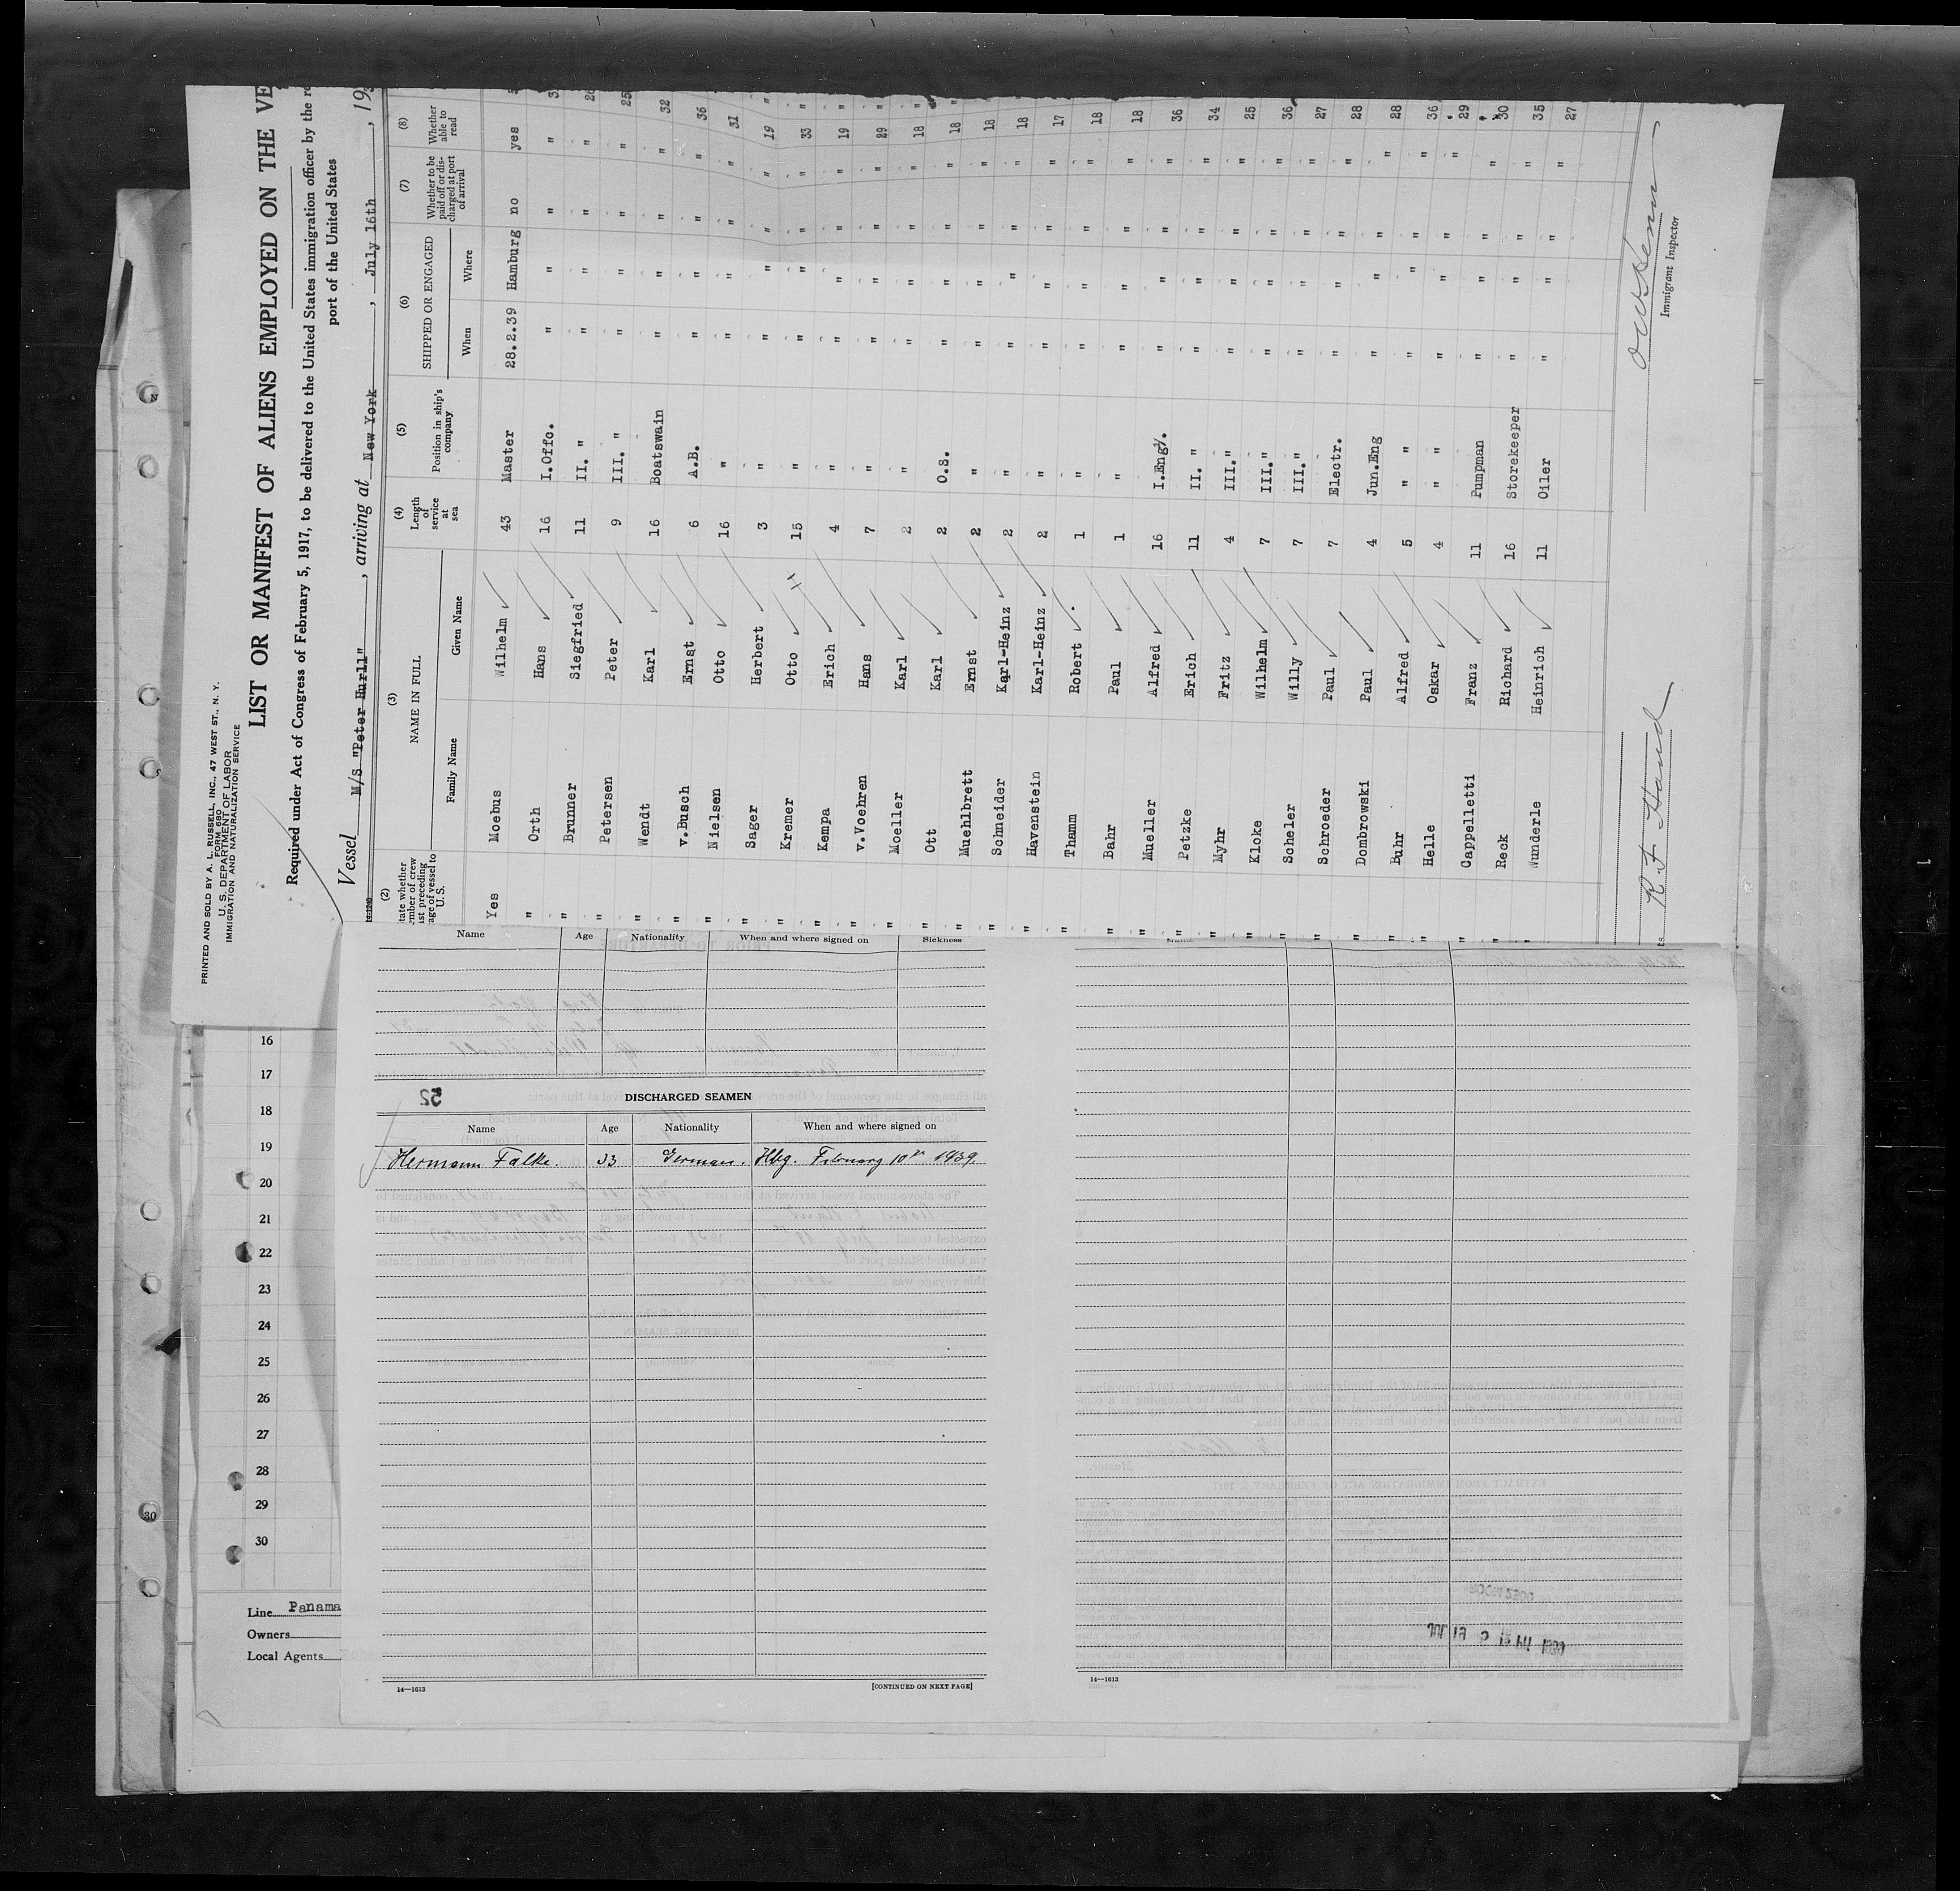 PRINTED AND SOLD BY A. L. RUSSELL, INC., 47 WEST ST., N. Y.
FORM 680
U. S. DEPARTMENT OF LABOR
IMMIGRATION AND NATURALIZATION SERVICE
LIST OR MANIFEST OF ALIENS EMPLOYED ON THE VE
Required under Act of Congress of February 5, 1917, to be delivered to the United States immigration officer by the re
port of the United States
Vessel M/S "Peter Hurll", arriving at New York, July 16th, 193
(2) (3) (4) (5) (6) (7) (8)
tate whether
mber of crew
st preceding
age of vessel to
U. S.
NAME IN FULL
Family Name Given Name
Length of service at sea
Position in ship's company
SHIPPED OR ENGAGED
When Where
Whether to be paid off or discharged at port of arrival
Whether able to read
Yes Moebus Wilhelm 43 Master 28.2.39 Hamburg no yes
" Orth Hans 16 I.Offc. " " " "
" Brunner Siegfried 11 II. " " " " "
" Petersen Peter 9 III. " " " " " 25
" Wendt Karl 16 Boatswain " " " " 32
" v.Busch Ernst 6 A.B. " " " " 36
" Nielsen Otto 16 " " " " " 31
" Sager Herbert 3 " " " " " 19
" Kremer Otto 15 " " " " " 33
" Kempa Erich 4 " " " " " 19
" v.Voehren Hans 7 " " " " " 29
" Moeller Karl 2 " " " " " 18
" Ott Karl 2 O.S. " " " " 18
" Muehlbrett Ernst 2 " " " " " 18
" Schneider Karl-Heinz 2 " " " " " 18
" Havenstein Karl-Heinz 2 " " " " " 17
" Thamm Robert 1 " " " " " 18
" Bahr Paul 1 " " " " " 18
" Mueller Alfred 16 I.Eng. " " " " 36
" Petzke Erich 11 II. " " " " " 34
" Myhr Fritz 4 III. " " " " " 25
" Kloke Wilhelm 7 III. " " " " " 36
" Scheler Willy 7 III. " " " " " 27
" Schroeder Paul 7 Electr. " " " " 28
" Dombrowski Paul 4 Jun.Eng " " " " 28
" Buhr Alfred 5 " " " " " " 36
" Helle Oskar 4 " " " " " " 29
" Cappelletti Franz 11 Pumpman " " " " 30
" Reck Richard 16 Storekeeper " " " " 35
" Wunderle Heinrich 11 Oiler " " " " 27
R. F. Hand
Immigrant Inspector
Name Age Nationality When and where signed on Sickness
52
DISCHARGED SEAMEN
Name Age Nationality When and where signed on
Hermann Falke. 33 German. Hbg. February 10th 1939.
14—1613
[CONTINUED ON NEXT PAGE]
14—1613
16
17
18
19
20
21
22
23
24
25
26
27
28
29
30
30
Line Panama
Owners
Local Agents